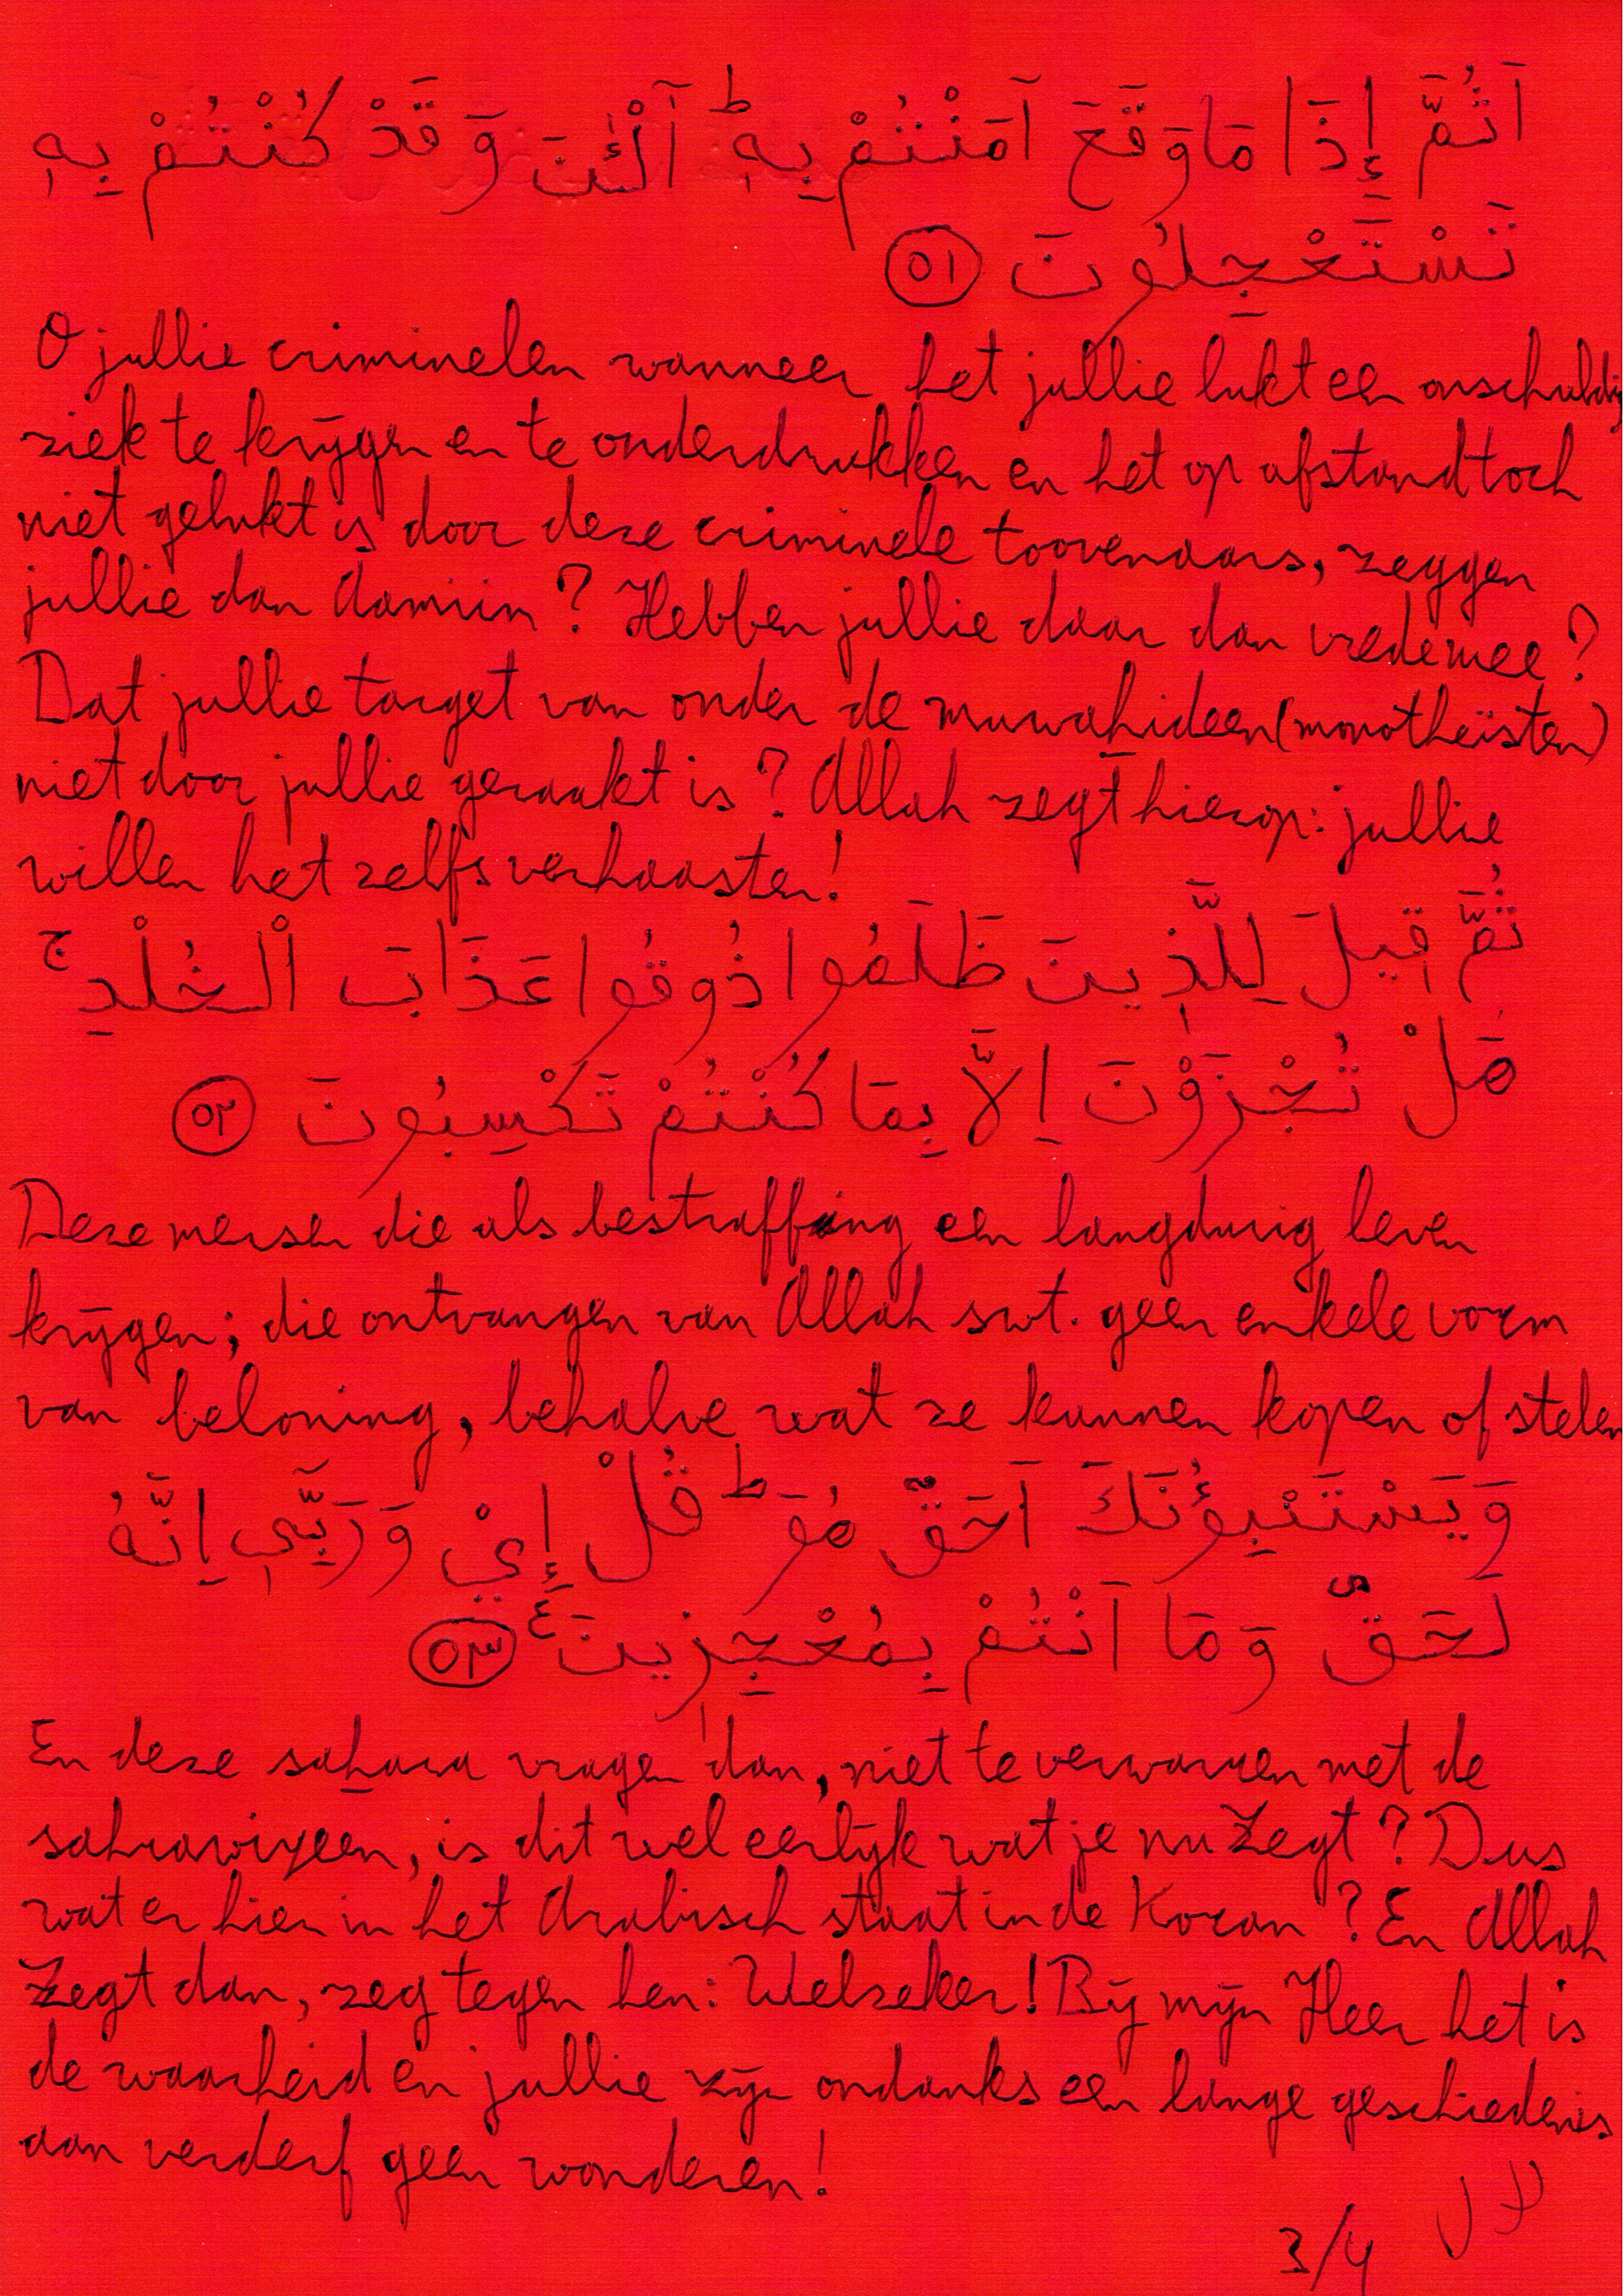 اَثُمَّ إِذَا مَا وَقَعَ اٰمَنْتُمْ بِهٖ ؕ آٰلْـٰٔنَ وَ قَدْ كُنْتُمْ بِهٖ
تَسْتَعْجِلُونَ ٥١
O jullie criminelen wanneer het jullie lukt een onschuldig
ziek te krijgen en te onderdrukken en het op afstand toch
niet gelukt is door deze criminele toovenaars, zeggen
jullie dan Aamiin? Hebben jullie daar dan vrede mee?
Dat jullie target van onder de muwahideen (monotheïsten)
niet door jullie geraakt is? Allah zegt hierop: jullie
willen het zelfs verhaasten!
ثُمَّ قِيلَ لِلَّذِينَ ظَلَمُوا ذُوقُوا عَذَابَ الْخُلْدِ ۚ
هَلْ تُجْزَوْنَ اِلَّا بِمَا كُنْتُمْ تَكْسِبُونَ ٥٢
Deze mensen die als bestraffing een langdurig leven
krijgen; die ontvangen van Allah swt. geen enkele vorm
van beloning, behalve wat ze kunnen kopen of stelen
وَ يَسْتَنْبِؤُنَكَ اَحَقٌّ هُوَ ؕ قُلْ إِيْ وَ رَبِّي اِنَّهُ
لَحَقٌّ وَ مَا اَنْتُمْ بِمُعْجِزِينَ ع ٥٣
En deze sahara vragen dan, niet te verwarren met de
sahrawiyeen, is dit wel eerlijk wat je nu zegt? Dus
wat er hier in het Arabisch staat in de Koran? En Allah
zegt dan, zeg tegen hen: Welzeker! Bij mijn Heer het is
de waarheid en jullie zijn ondanks een lange geschiedenis
aan verderf geen wonderen!
3/4